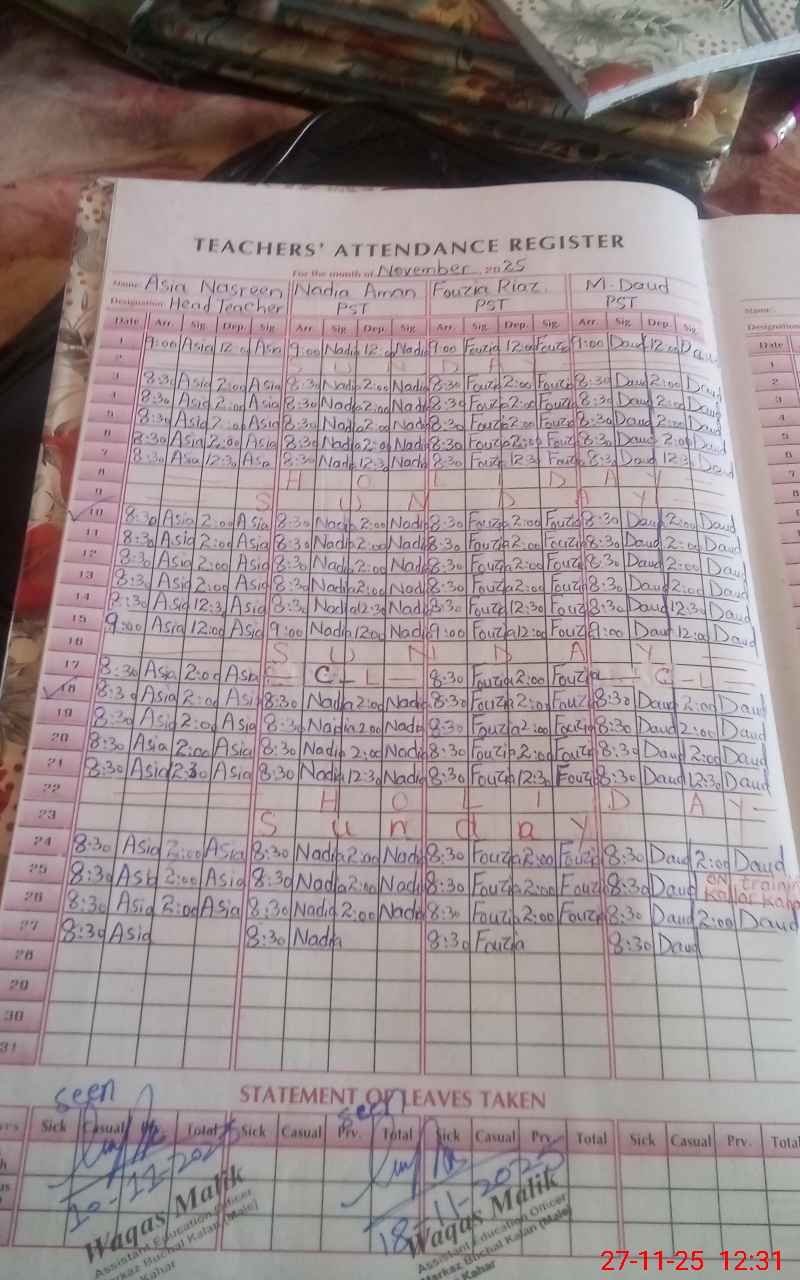 TEACHERS' ATTENDANCE REGISTER
For the month of November 2025
Name: Asia Nasreen Nadia Aman Fouzia Riaz. M. Daud
Designation: Head Teacher PST PST PST
Date Arr. Sig. Dep. Sig. Arr. Sig. Dep. Sig. Arr. Sig. Dep. Sig. Arr. Sig. Dep. Sig.
1 9:00 Asia 12:00 Asia 9:00 Nadia 12:00 Nadia 9:00 Fouzia 12:00 Fouzia 9:00 Daud 12:00 Daud
2 S U N D A Y
3 8:30 Asia 2:00 Asia 8:30 Nadia 2:00 Nadia 8:30 Fouzia 2:00 Fouzia 8:30 Daud 2:00 Daud
4 8:30 Asia 2:00 Asia 8:30 Nadia 2:00 Nadia 8:30 Fouzia 2:00 Fouzia 8:30 Daud 2:00 Daud
5 8:30 Asia 2:00 Asia 8:30 Nadia 2:00 Nadia 8:30 Fouzia 2:00 Fouzia 8:30 Daud 2:00 Daud
6 8:30 Asia 2:00 Asia 8:30 Nadia 2:00 Nadia 8:30 Fouzia 2:00 Fouzia 8:30 Daud 2:00 Daud
7 8:30 Asia 12:30 Asia 8:30 Nadia 12:30 Nadia 8:30 Fouzia 12:30 Fouzia 8:30 Daud 12:30 Daud
8 H O L I D A Y
9 S U N D A Y
10 8:30 Asia 2:00 Asia 8:30 Nadia 2:00 Nadia 8:30 Fouzia 2:00 Fouzia 8:30 Daud 2:00 Daud
11 8:30 Asia 2:00 Asia 8:30 Nadia 2:00 Nadia 8:30 Fouzia 2:00 Fouzia 8:30 Daud 2:00 Daud
12 8:30 Asia 2:00 Asia 8:30 Nadia 2:00 Nadia 8:30 Fouzia 2:00 Fouzia 8:30 Daud 2:00 Daud
13 8:30 Asia 2:00 Asia 8:30 Nadia 2:00 Nadia 8:30 Fouzia 2:00 Fouzia 8:30 Daud 2:00 Daud
14 8:30 Asia 12:30 Asia 8:30 Nadia 12:30 Nadia 8:30 Fouzia 12:30 Fouzia 8:30 Daud 12:30 Daud
15 9:00 Asia 12:00 Asia 9:00 Nadia 12:00 Nadia 9:00 Fouzia 12:00 Fouzia 9:00 Daud 12:00 Daud
16 S U N D A Y
17 8:30 Asia 2:00 Asia C-L 8:30 Fouzia 2:00 Fouzia C-L
18 8:30 Asia 2:00 Asia 8:30 Nadia 2:00 Nadia 8:30 Fouzia 2:00 Fouzia 8:30 Daud 2:00 Daud
19 8:30 Asia 2:00 Asia 8:30 Nadia 2:00 Nadia 8:30 Fouzia 2:00 Fouzia 8:30 Daud 2:00 Daud
20 8:30 Asia 2:00 Asia 8:30 Nadia 2:00 Nadia 8:30 Fouzia 2:00 Fouzia 8:30 Daud 2:00 Daud
21 8:30 Asia 12:30 Asia 8:30 Nadia 12:30 Nadia 8:30 Fouzia 12:30 Fouzia 8:30 Daud 12:30 Daud
22 H O L I D A Y
23 S u n d a y
24 8:30 Asia 2:00 Asia 8:30 Nadia 2:00 Nadia 8:30 Fouzia 2:00 Fouzia 8:30 Daud 2:00 Daud
25 8:30 Asia 2:00 Asia 8:30 Nadia 2:00 Nadia 8:30 Fouzia 2:00 Fouzia 8:30 Daud ON training kallar kahar
26 8:30 Asia 2:00 Asia 8:30 Nadia 2:00 Nadia 8:30 Fouzia 2:00 Fouzia 8:30 Daud 2:00 Daud
27 8:30 Asia 8:30 Nadia 8:30 Fouzia 8:30 Daud
28
29
30
31
STATEMENT OF LEAVES TAKEN
seen seen
Sick Casual Prv. Total Sick Casual Prv. Total Sick Casual Prv. Total Sick Casual Prv. Total
10-11-2025 18-11-2025
Waqas Malik
Assistant Education Officer
Markaz Buchal Kalan (Male)
Kahar
Waqas Malik
Assistant Education Officer
Markaz Buchal Kalan (Male)
Kahar
Name:
Designation
Date
1
2
3
4
5
6
7
8
27-11-25 12:31